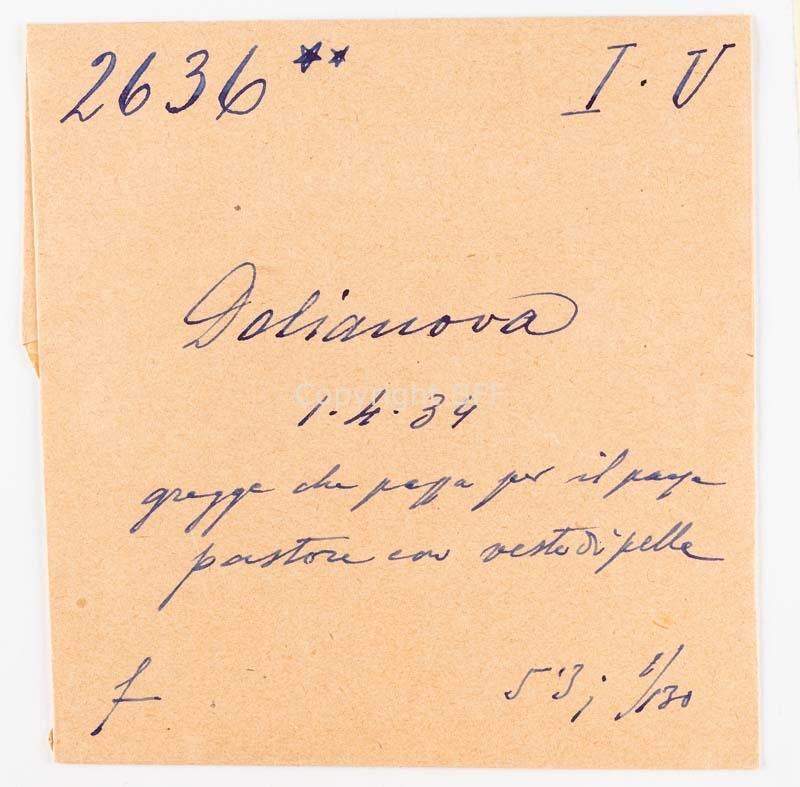 2636 ** I. V
Dolianova
Copyright SFF
1.4.34
gregge che passa per il paese
pastore con veste di pelle
f 5'3; 1/130